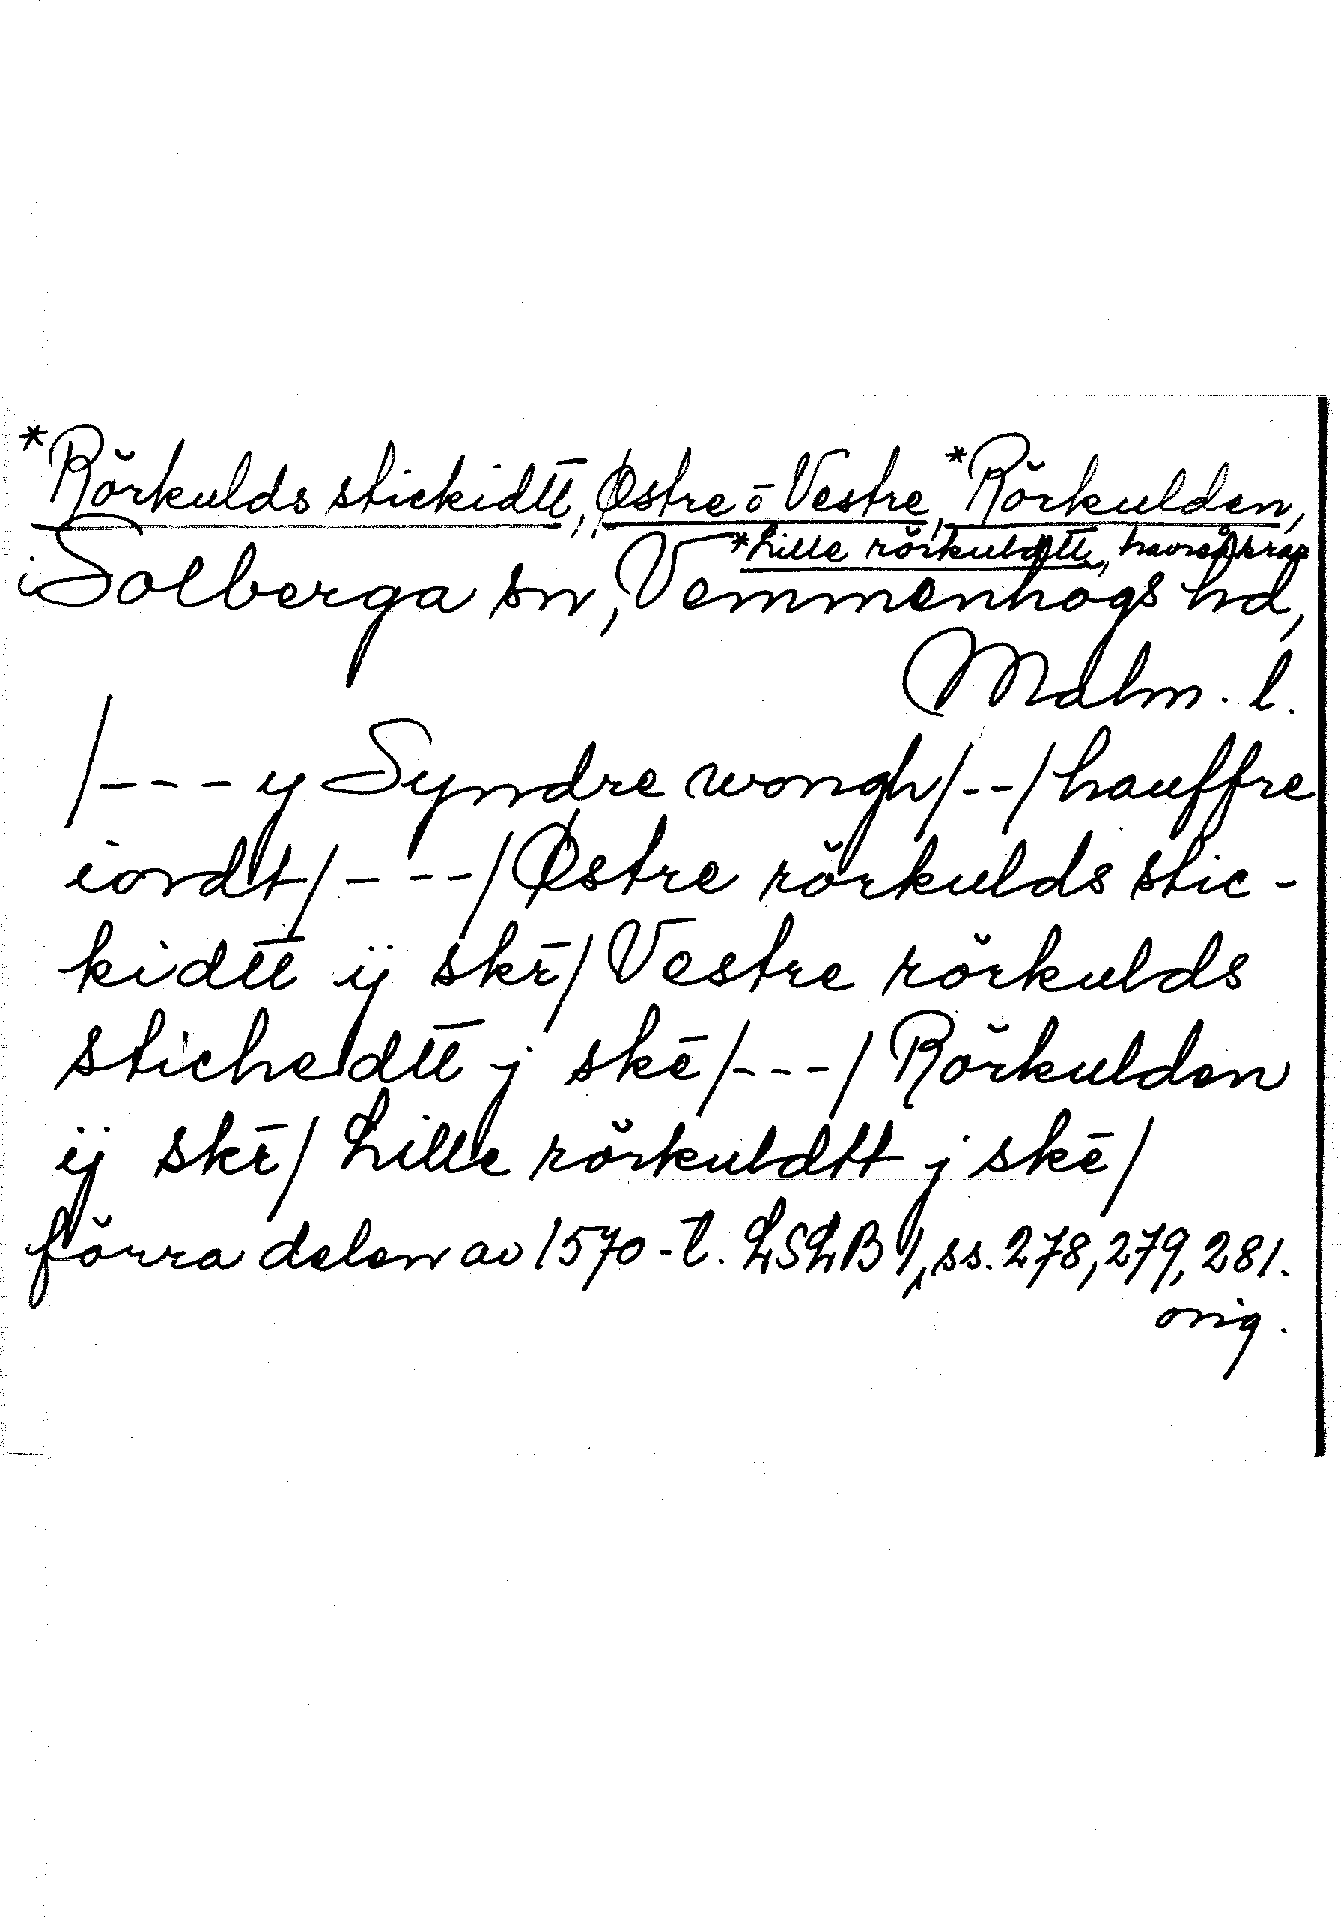 *Rörkulds stickidtt, Østre o Vestre, *Rörkulden,
*Lille rörkuldtt,
i Solberga sn, Vemmenhögs hd,
Malm. l.
/---y Syndre wongh/--/hauffre
iordt/----/Østre rörkulds stic-
kidtt ij skē/Vestre rörkulds
stichedtt j skē/---/Rörkulden
ij skē/Lille rörkuldtt j skē/
förra delen av 1570-t. LSLB 1, ss. 278, 279, 281.
orig.